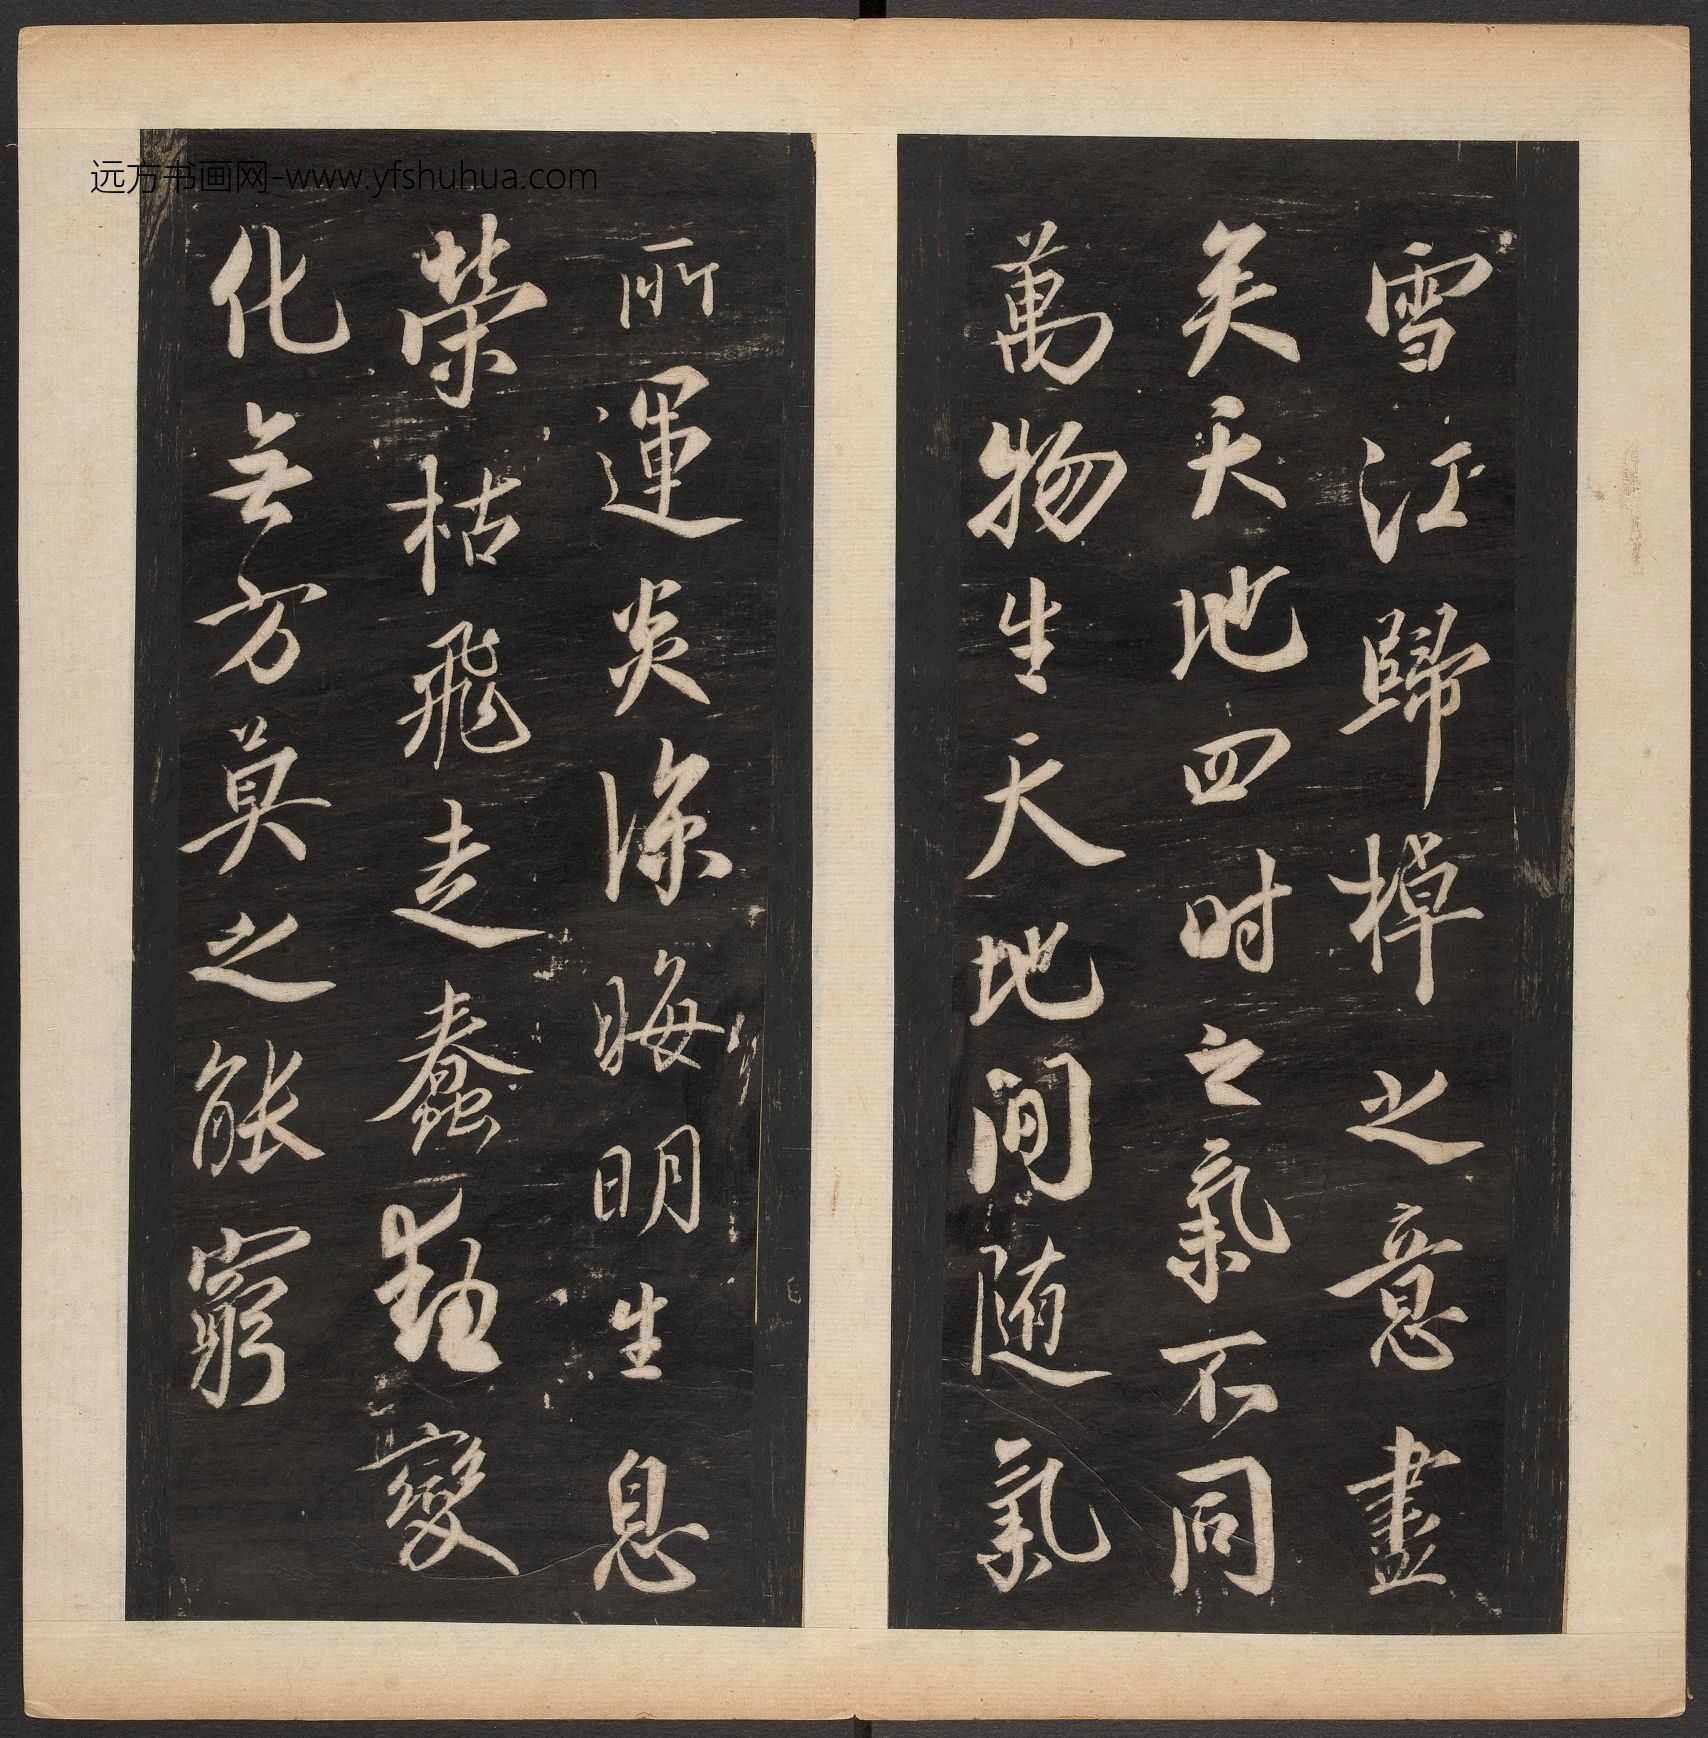 远方书画网-www.yfshuhua.com
雪江歸棹之意盡
矣天地四时之氣不同
萬物生天地间随氣
所運炎涼晦明生息
榮枯飛走蠢動變
化無方莫之能窮